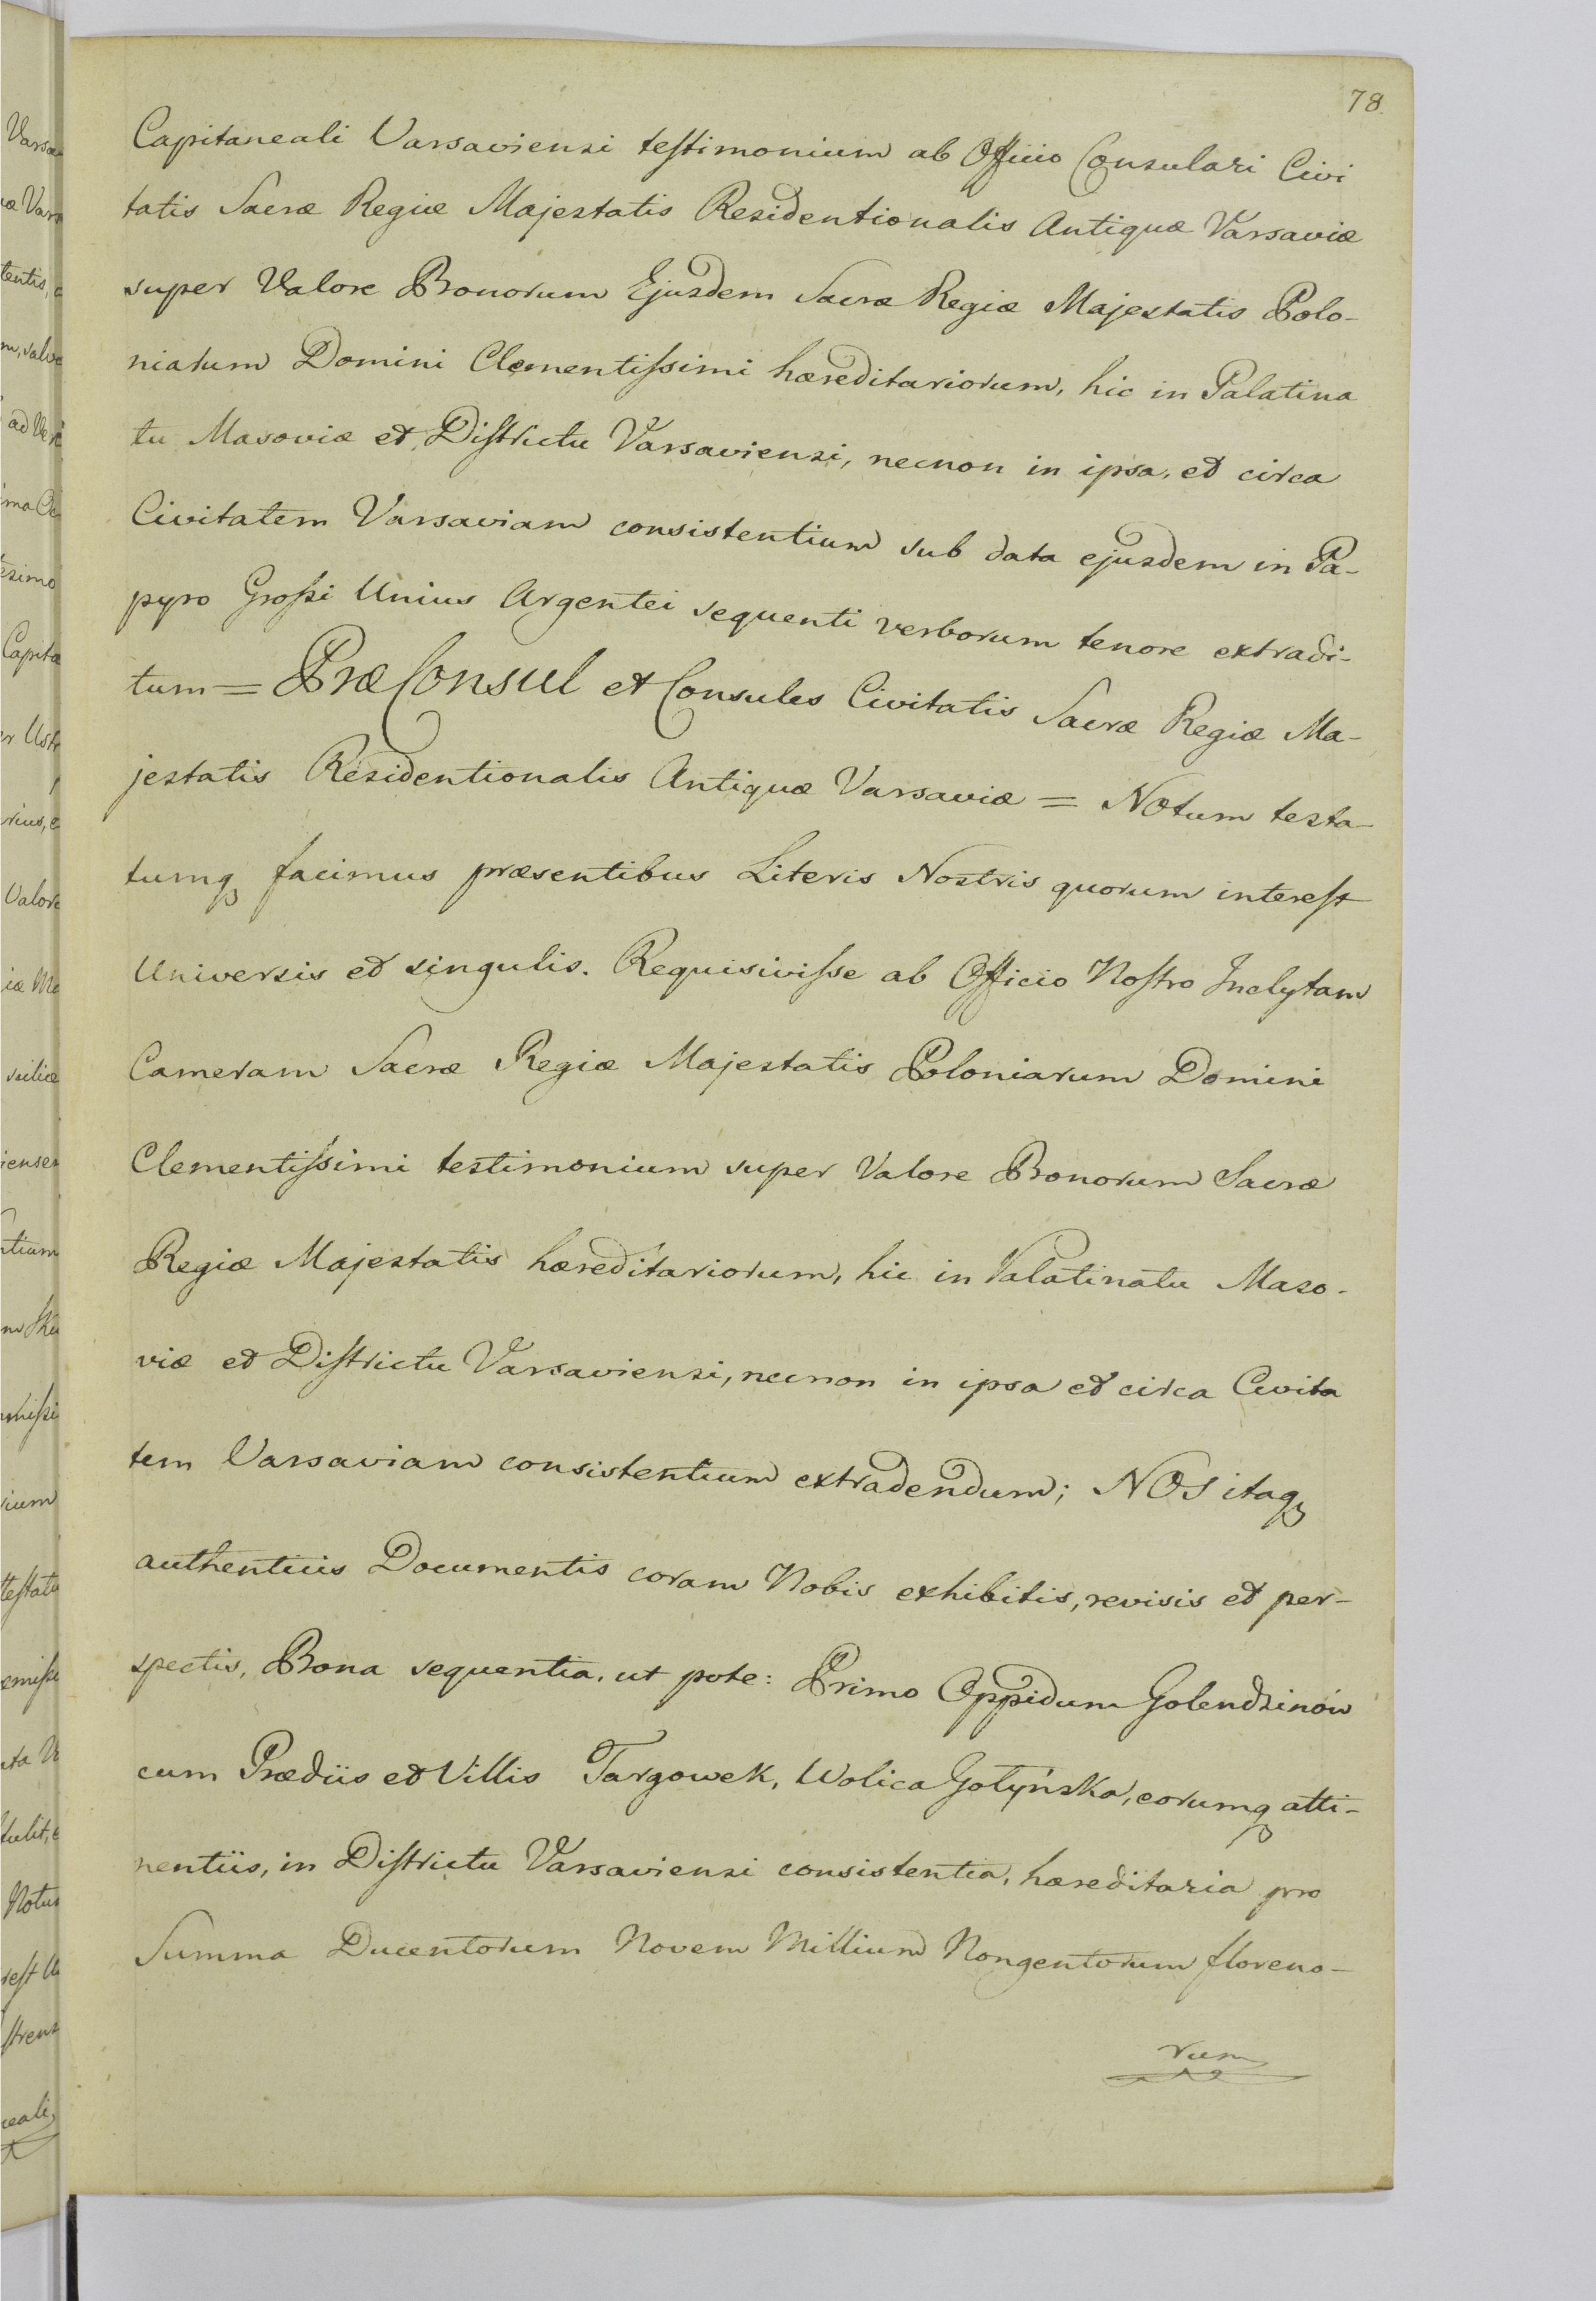 78.
Capitaneali Varsaviensi testimonium ab Officio Consulari Civi
tatis Sacræ Regiæ Majestatis Residentionalis Antiquæ Varsaviæ
super Valore Bonorum Ejusdem Sacræ Regiæ Majestatis Polo-
niarum Domini Clementissimi hæreditariorum, hic in Palatina
tu Masoviæ et Districtu Varsaviensi, necnon in ipsa, et circa
Civitatem Varsaviam consistentium sub data ejusdem in Pa-
pyro Grossi Unius Argentei sequenti verborum tenore extradi-
tum = PræConsul et Consules Civitatis Sacræ Regiæ Ma-
jestatis Residentionalis Antiquæ Varsaviæ = Notum testa-
tumq facimus præsentibus Literis Nostris quorum interest
Universis et singulis. Requisivisse ab Officio Nostro Inclytam
Cameram Sacræ Regiæ Majestatis Poloniarum Domini
Clementissimi testimonium super Valore Bonorum Sacræ
Regiæ Majestatis hæreditariorum, hic in Palatinatu Maso-
viæ et Districtu Varsaviensi, necnon in ipsa et circa Civita
tem Varsaviam consistentium extradendum; NOS itaq
authenticis Documentis coram Nobis exhibitis, revisis et per-
spectis, Bona sequentia, ut pote: Primo Oppidum Golendzinów
cum Prædiis et Villis Targowek, Wolica Gotyńska, eorumq atti-
nentiis, in Districtu Varsaviensi consistentia, hæreditaria pro
Summa Ducentorum Novem Millium Nongentorum floreno-
rum